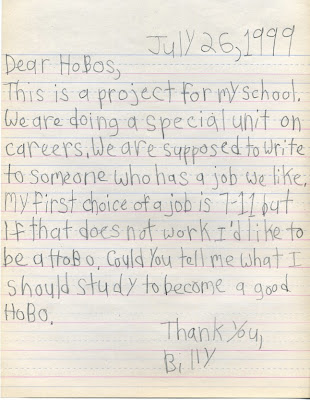 July 26, 1999
Dear HoBos,
This is a project for my school.
We are doing a special unit on
careers. We are supposed to write
to someone who has a job we like.
My first choice of a job is 7-11 but
If that does not work I'd like to
be a HoBo. Could You tell me what I
should study to become a good
HoBo.
Thank You,
Billy